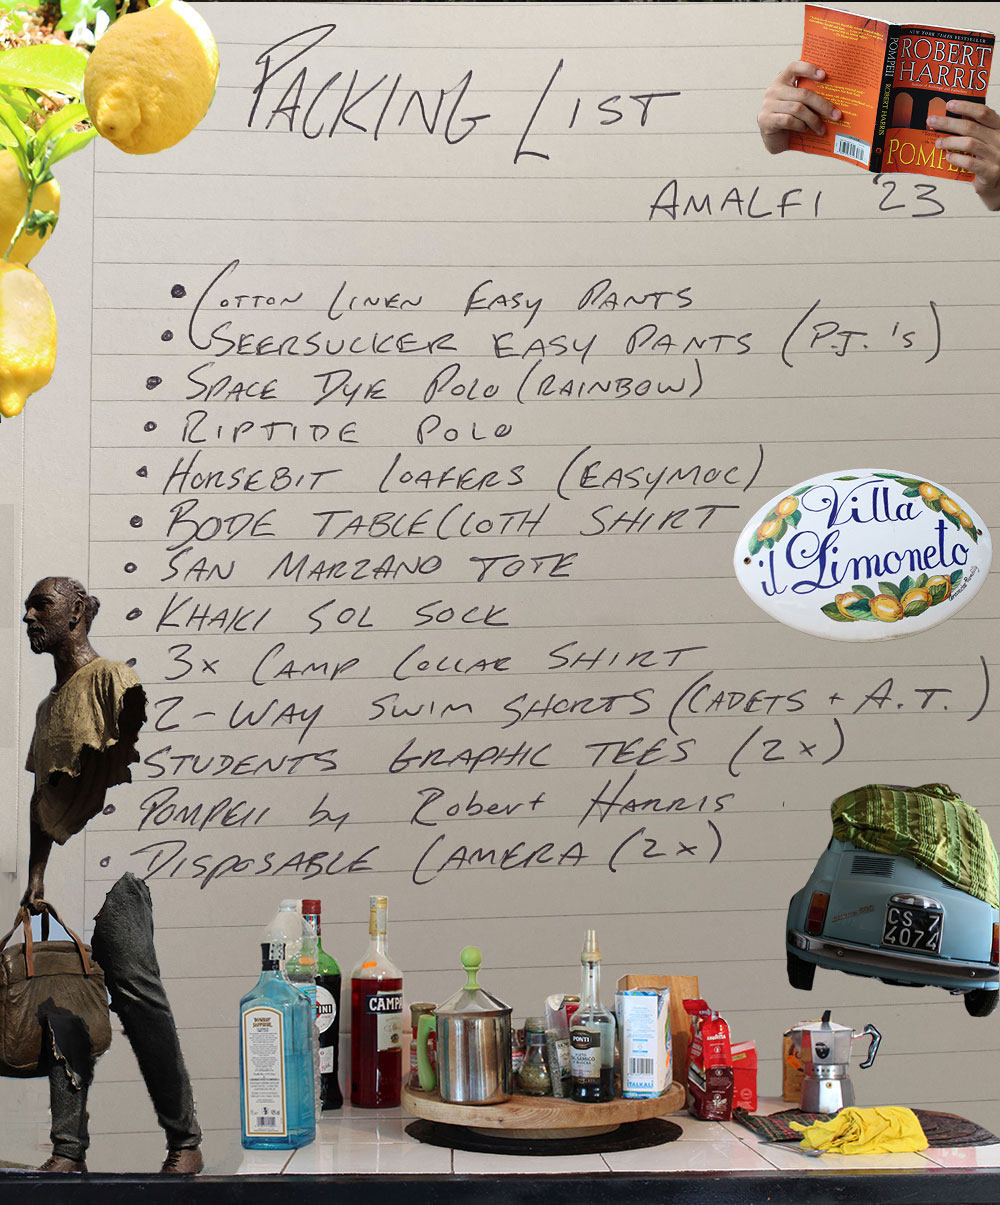 PACKING LIST
AMALFI '23
• COTTON LINEN EASY PANTS
• SEERSUCKER EASY PANTS (P.J.'s)
• SPACE DYE POLO (RAINBOW)
• RIPTIDE POLO
• HORSEBIT LOAFERS (EASYMOC)
• BODE TABLECLOTH SHIRT
• SAN MARZANO TOTE
• KHAKI SOL SOCK
• 3x CAMP COLLAR SHIRT
2-WAY SWIM SHORTS (CADETS + A.T.)
STUDENTS GRAPHIC TEES (2x)
• POMPEII by Robert HARRIS
• DISPOSABLE CAMERA (2x)
NEW YORK TIMES BESTSELLER
ROBERT
HARRIS
POMPEII
POMPEII ROBERT HARRIS
Villa
il Limoneto
CS 7
4074
BOMBAY
SAPPHIRE
INI
CAMPA
PONTI
ITALKALI
LAVAZZA